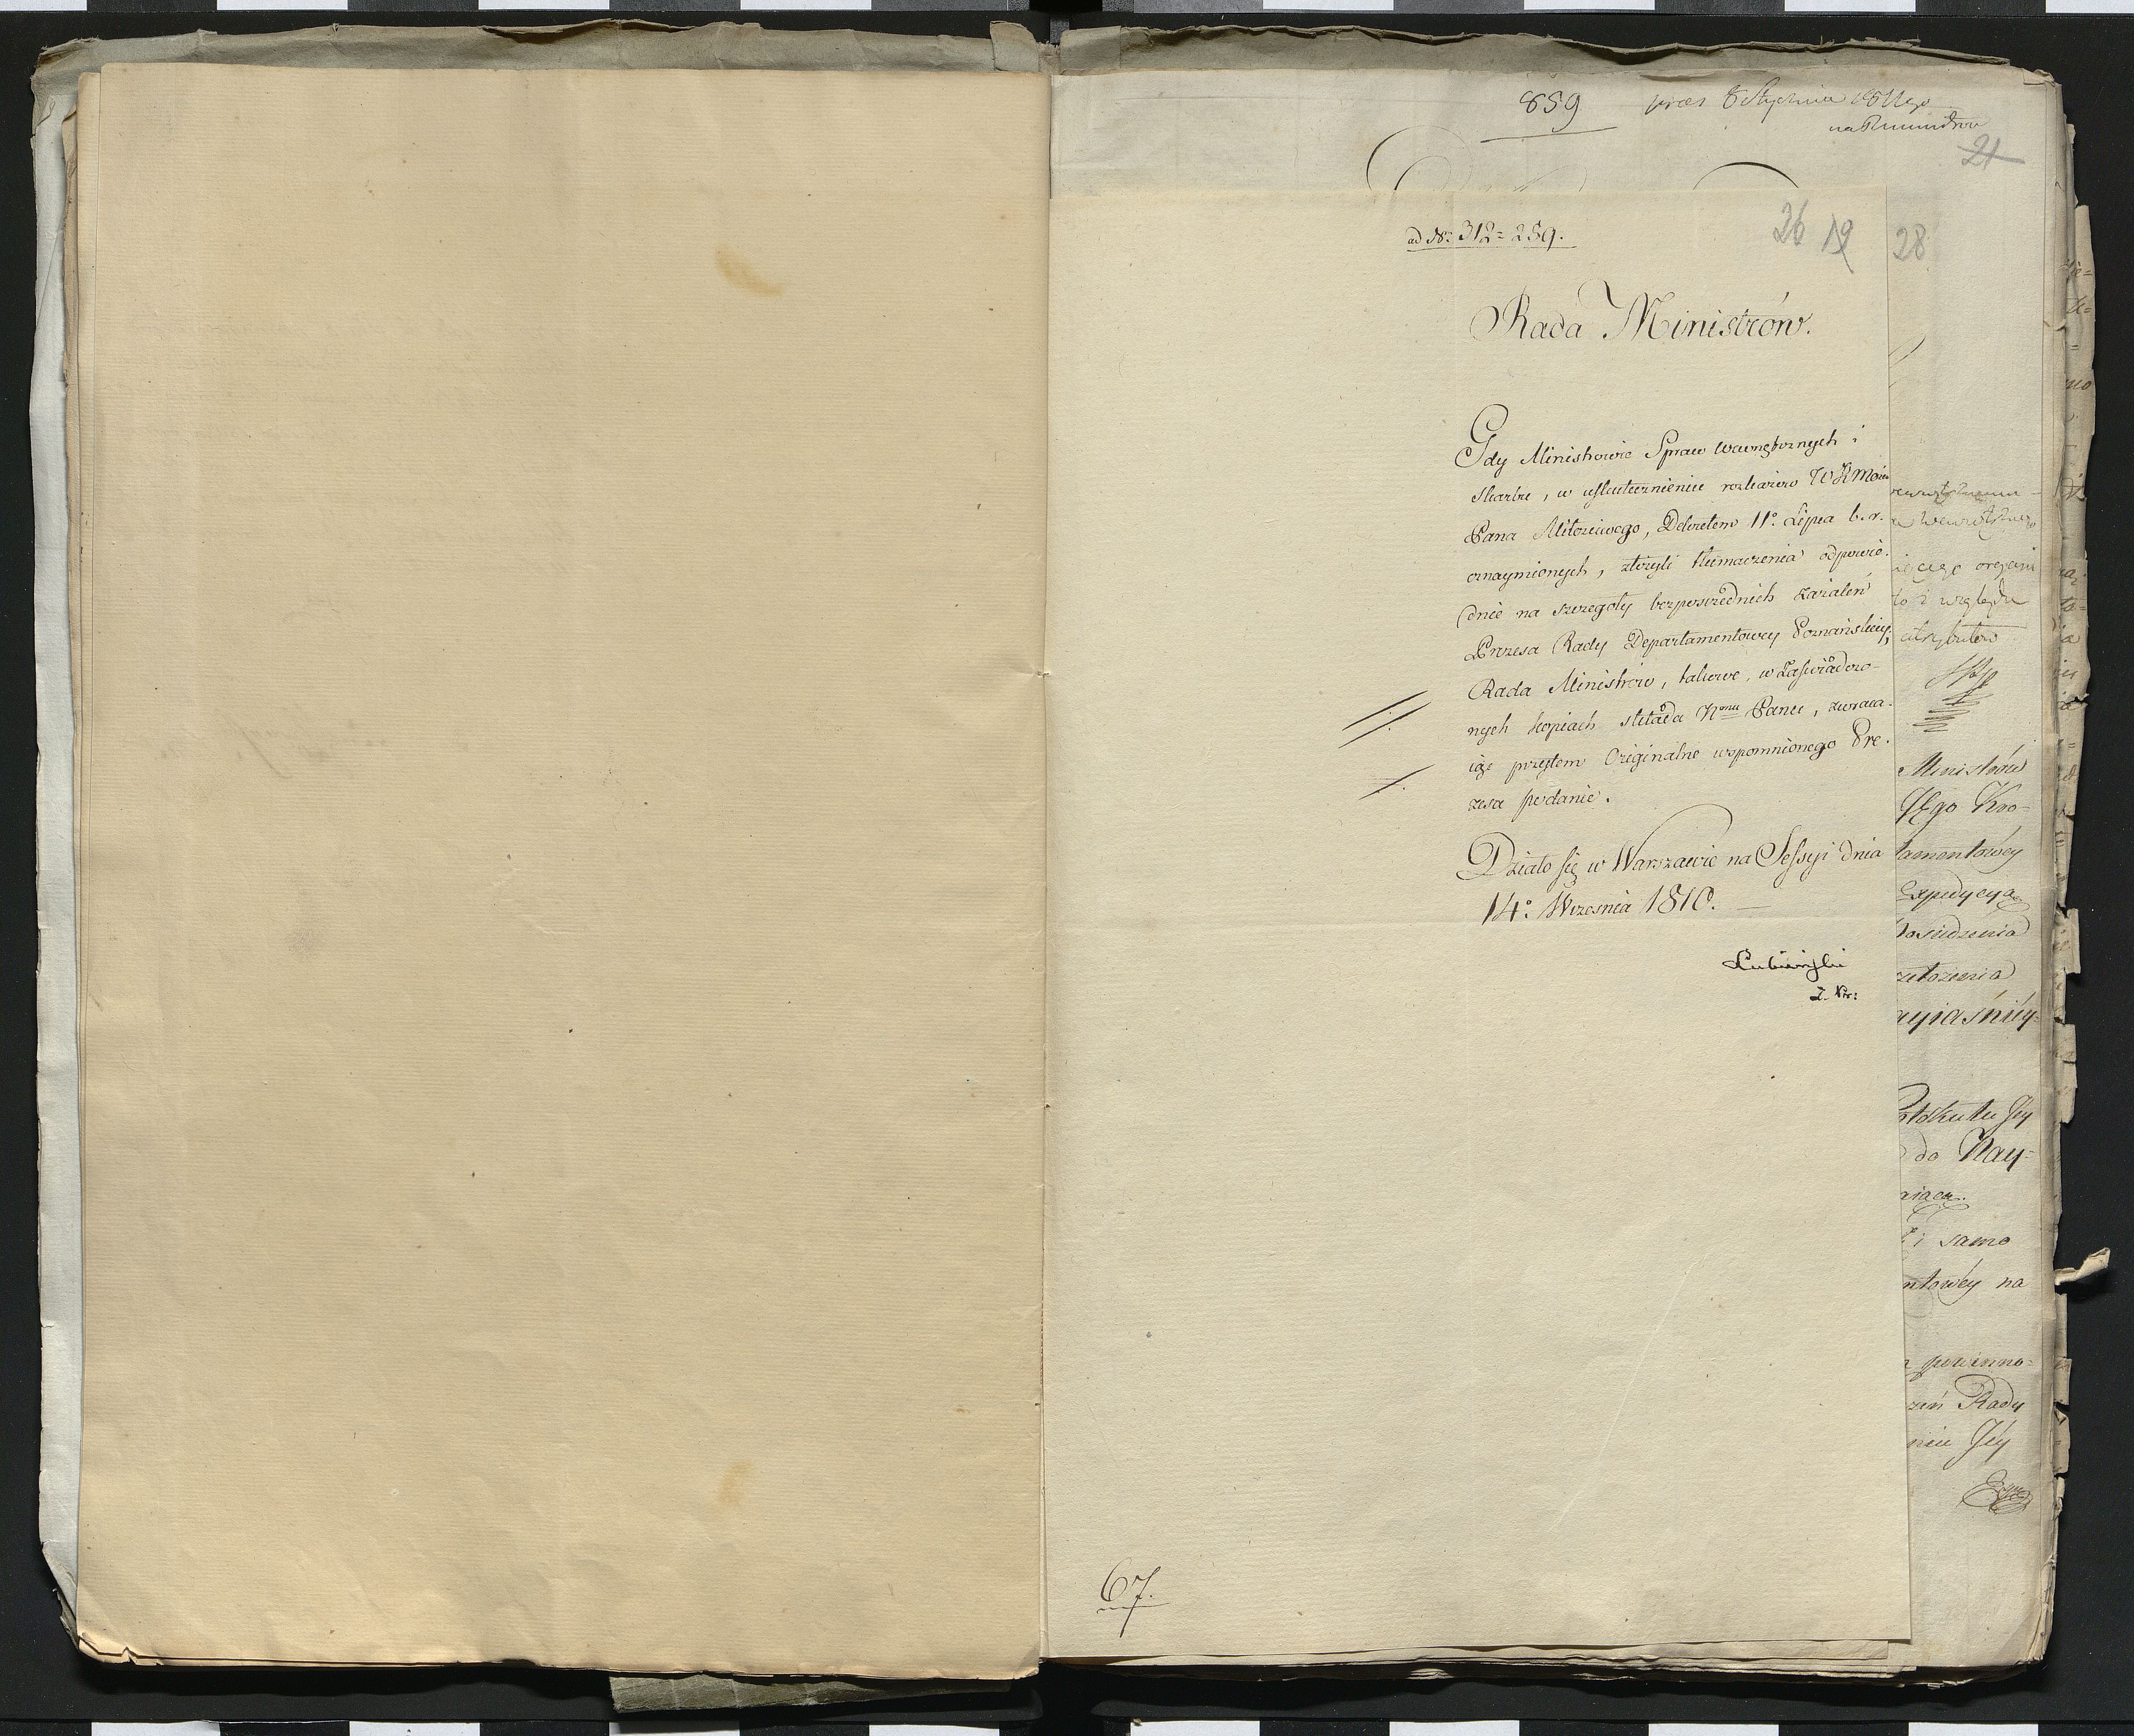 859
21
ad Nr 312=259.
26 19 28
Rada Ministrów.
Gdy Ministrowie Spraw Wewnętrznych i
Skarbu, w uskutecznieniu rozkazów WKMości
Pana Miłościwego, Dekretem 11° Lipca b. r.
oznaymionych, złożyli tłumaczenia odpowie-
dnie na szczegóły bezpośrednich zażaleń
Prezesa Rady Departamentowey Poznańskiey,
Rada Ministrów, takowe, w zaświadczo-
nych kopiach składa Nmu Panu, zwraca-
iąc przytem Originalne wspomnionego Pre-
zesa podanie.
Działo się w Warszawie na Sessyi dnia
14° Września 1810.
Lubieński
67.
Ministrów
JEgo Kro-
tamentowéy
Expedycya
do Nay-
i samo
ntowéy na
powinno-
Rady
Jéy